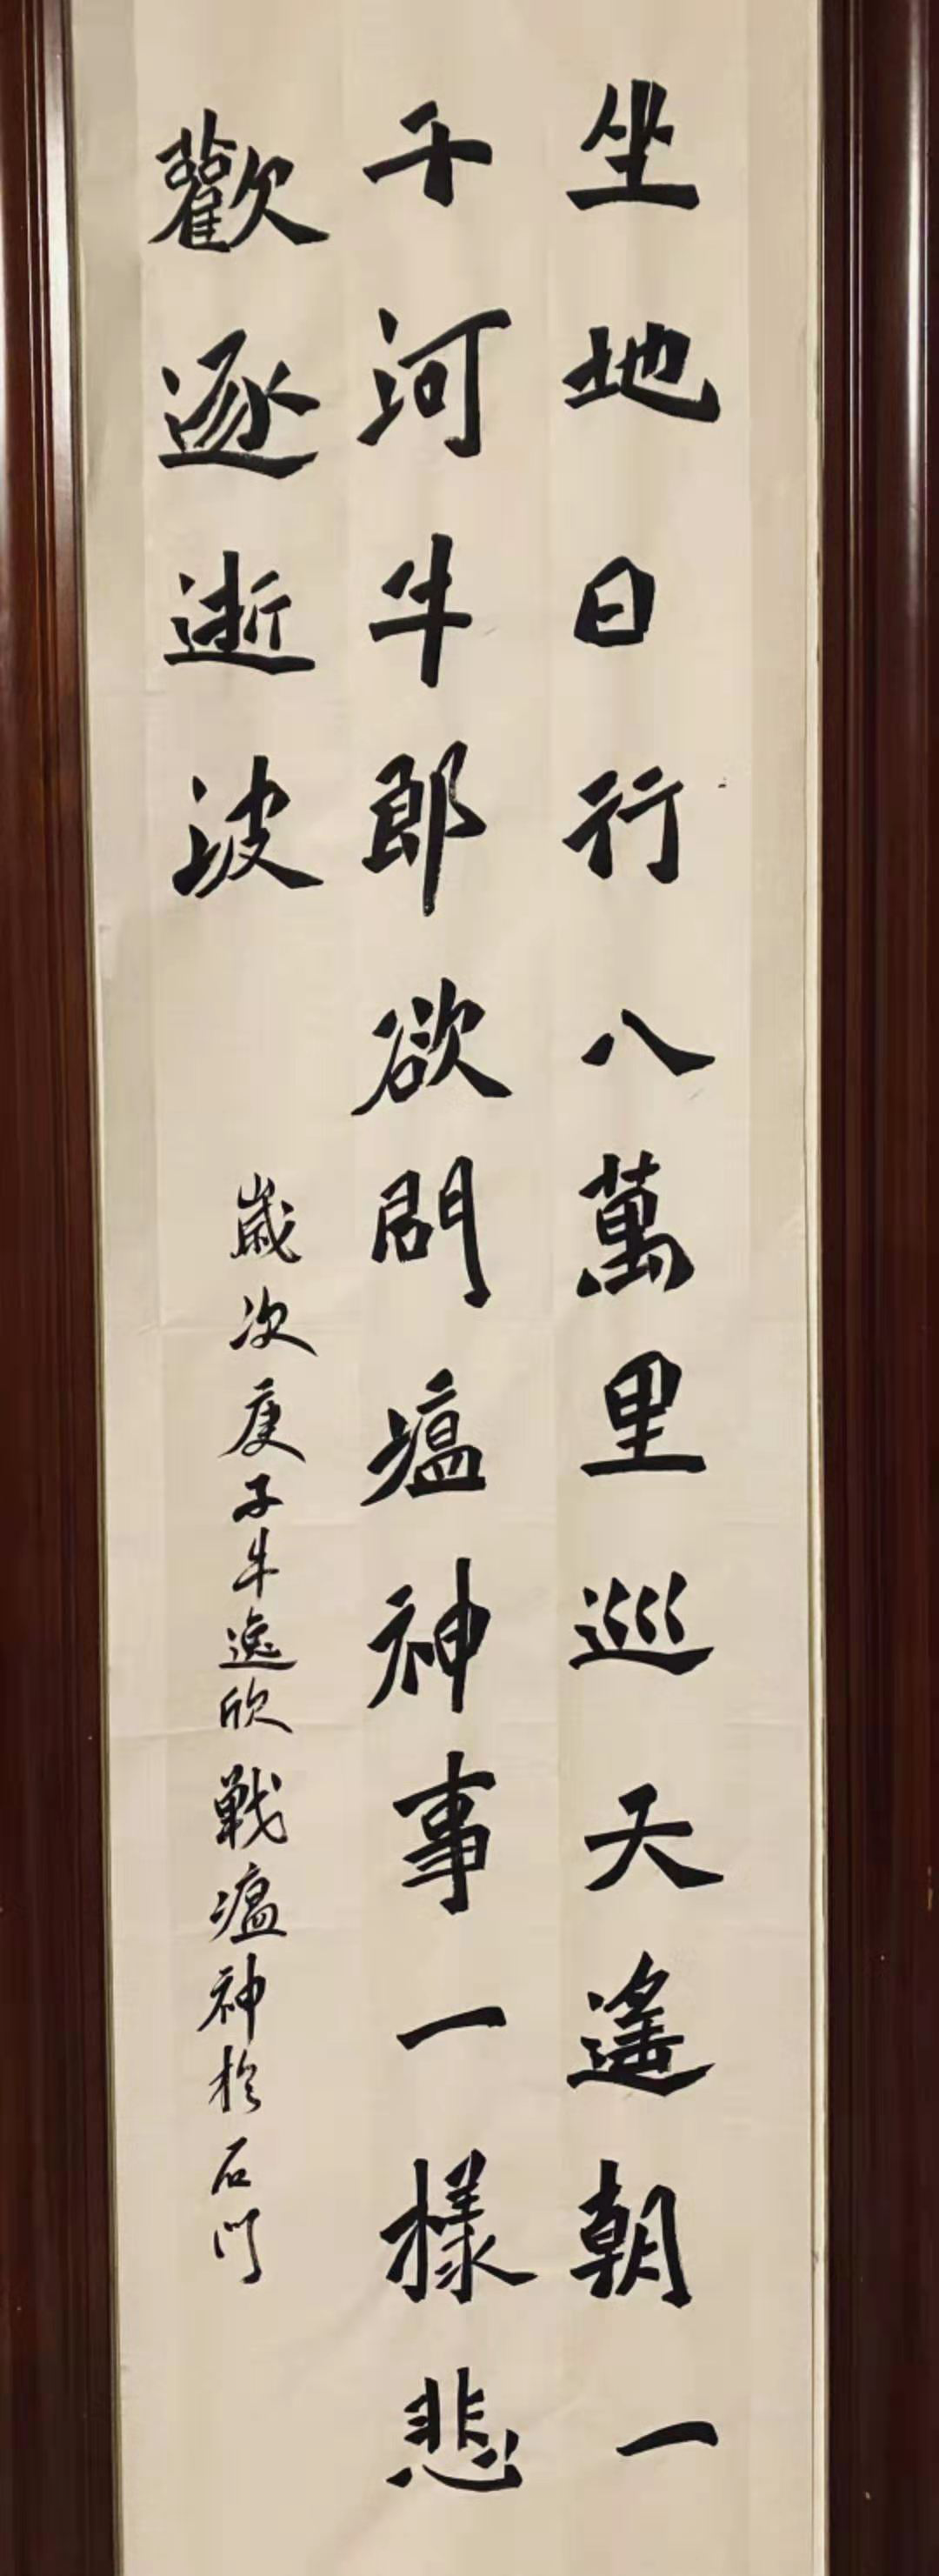 坐地日行八萬里巡天遙朝一
千河牛郎欲問瘟神事一樣悲
歡逐逝波
歲次庚子牛逸欣戰瘟神於石門